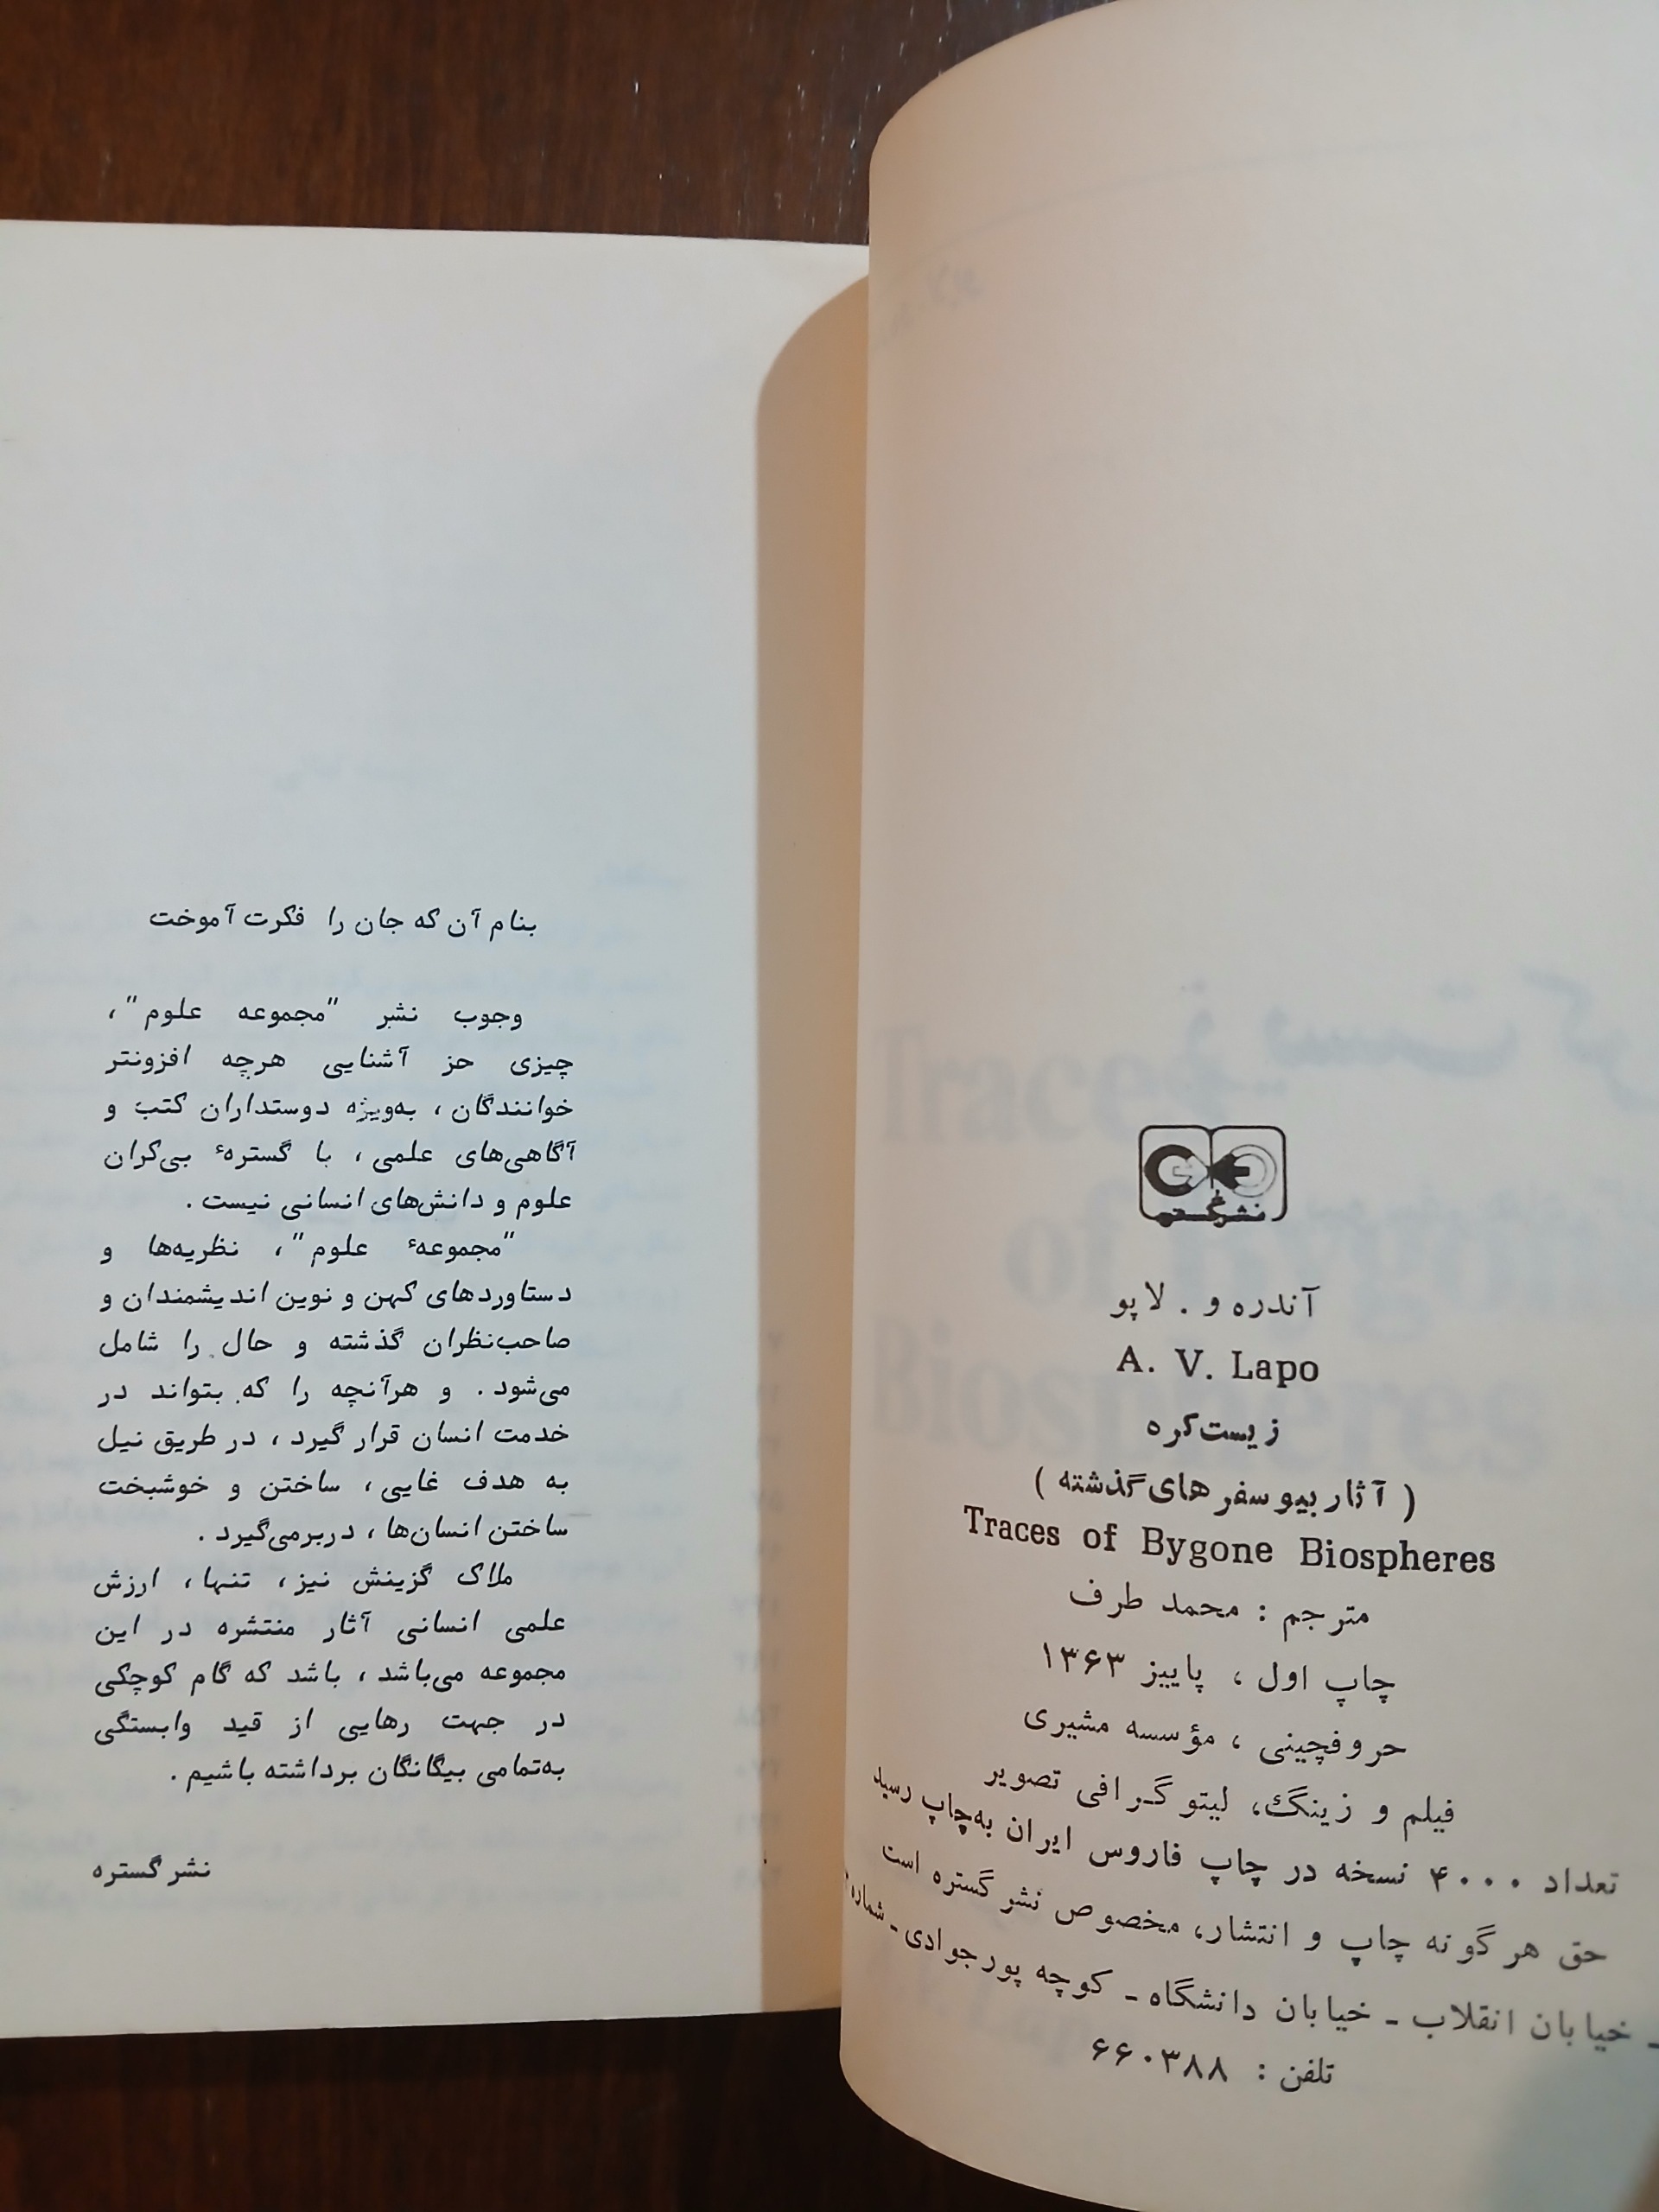 نشر گستره
آندره و . لاپو
A. V. Lapo
زیست‌کره
( آثار بیوسفرهای گذشته )
Traces of Bygone Biospheres
مترجم : محمد طرف
چاپ اول ، پاییز ۱۳۶۳
حروفچینی ، مؤسسه مشیری
فیلم و زینگ، لیتوگرافی تصویر
تعداد ۴۰۰۰ نسخه در چاپ فاروس ایران به‌چاپ رسید
حق هرگونه چاپ و انتشار، مخصوص نشر گستره است
ـ خیابان انقلاب ـ خیابان دانشگاه ـ کوچه پورجوادی ـ شماره
تلفن : ۶۶۰۳۸۸
بنام آن که جان را فکرت آموخت
وجوب نشر "مجموعه علوم" ،
چیزی حز آشنایی هرچه افزونتر
خوانندگان ، به‌ویژه دوستداران کتب و
آگاهی‌های علمی ، با گسترهٔ بی‌کران
علوم و دانش‌های انسانی نیست .
"مجموعهٔ علوم" ، نظریه‌ها و
دستاوردهای کهن و نوین اندیشمندان و
صاحب‌نظران گذشته و حال را شامل
می‌شود . و هرآنچه را که بتواند در
خدمت انسان قرار گیرد ، در طریق نیل
به هدف غایی ، ساختن و خوشبخت
ساختن انسان‌ها ، دربرمی‌گیرد .
ملاک گزینش نیز ، تنها ، ارزش
علمی انسانی آثار منتشره در این
مجموعه می‌باشد ، باشد که گام کوچکی
در جهت رهایی از قید وابستگی
به‌تمامی بیگانگان برداشته باشیم .
نشر گستره